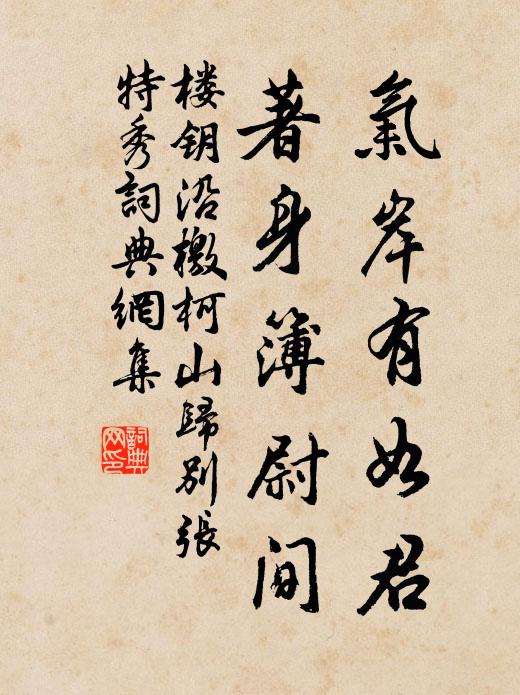 氣岸有如君
著身簿尉間
楼钥沿檄柯山歸别張
特秀詞典網集
詞典网印